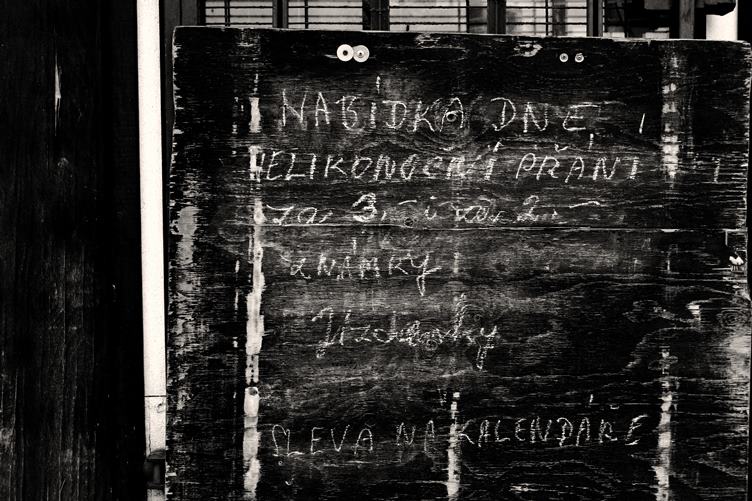 NABÍDKA DNE
VELIKONOČNÍ PŘÁNÍ
za 3,- i za 2,-
ZNÁMKY
Jízdenky
SLEVA NA KALENDÁŘE